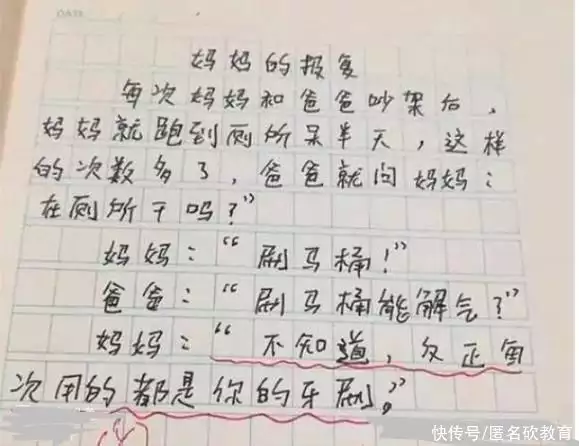 DATE
妈妈的报复
每次妈妈和爸爸吵架后，
妈妈就跑到厕所呆半天，这样
的次数多了，爸爸就问妈妈：
在厕所干吗？”
妈妈：“刷马桶！”
爸爸：“刷马桶能解气？”
妈妈：“不知道，反正每
次用的都是你的牙刷。”
快传号/匿名砍教育